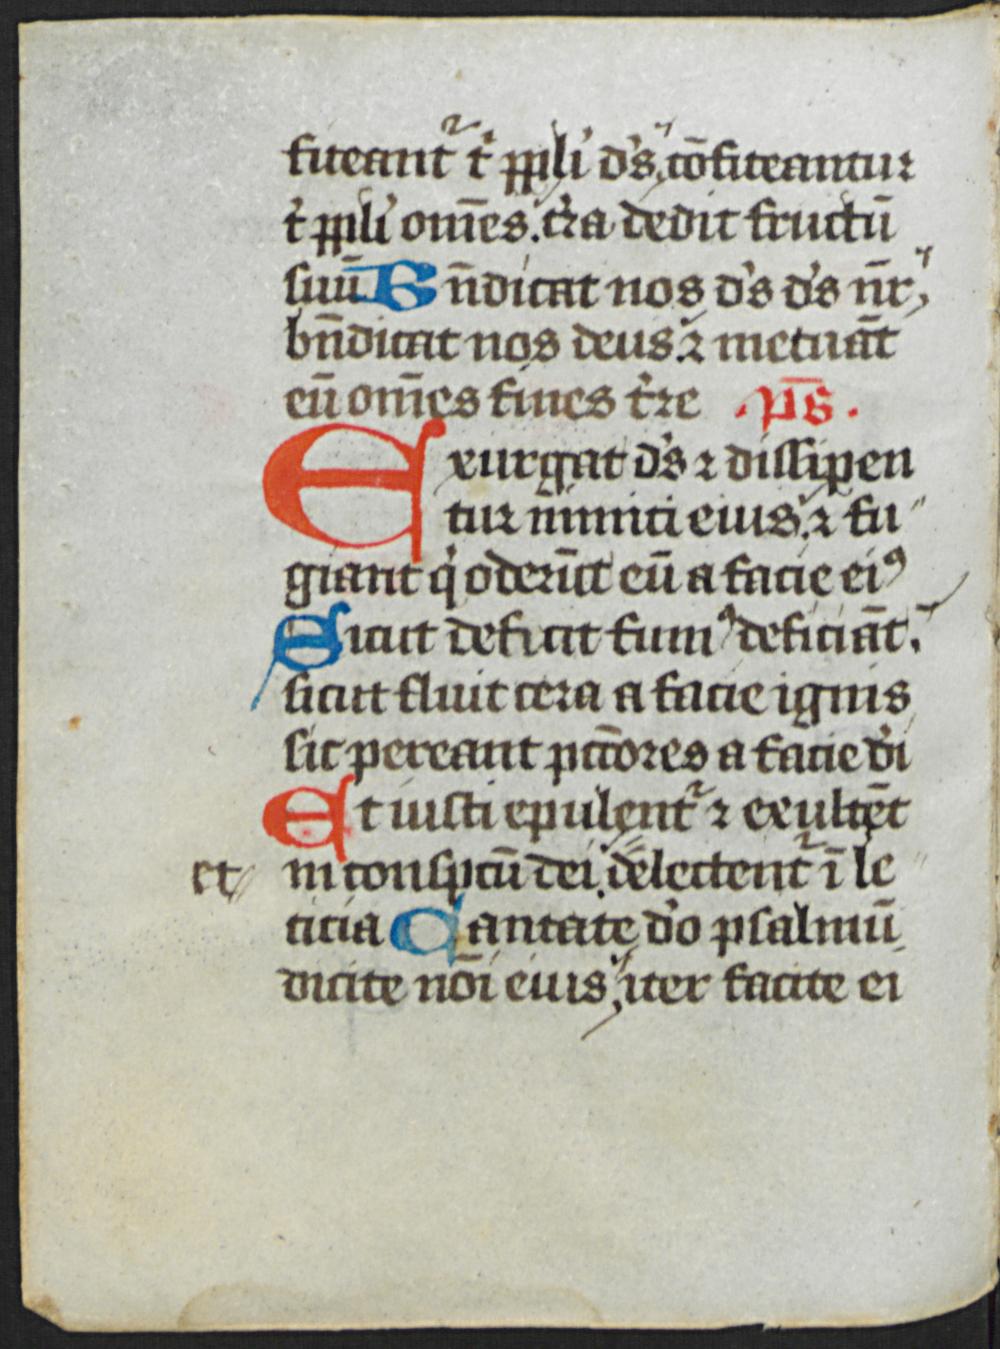 fiteant᷑ t᷑ ppli d̕s, cōfiteantur
t᷑ ppli om̄es. t̕ra dedit fructū
suū Bn̄dicat nos d̕s d̕s nr̄,
bn̄dicat nos deus ⁊ metuāt
eū om̄es fines t̕re . p̄s .
Exurgat d̕s ⁊ dissipen
tur inimici eius, ⁊ fu〃
giant q̕ oderūt eū a facie eiꝰ
Sicut deficit fumꝰ deficiāt.
sicut fluit cera a facie ignis
sic pereant pctōres a facie d̕i
Et iusti epulent᷑ ⁊ exultēt
et〃 in conspcū dei. delectent᷑ ī le〃
ticia Cantate d̕o psalmū
dicite nōi eius, iter facite ei